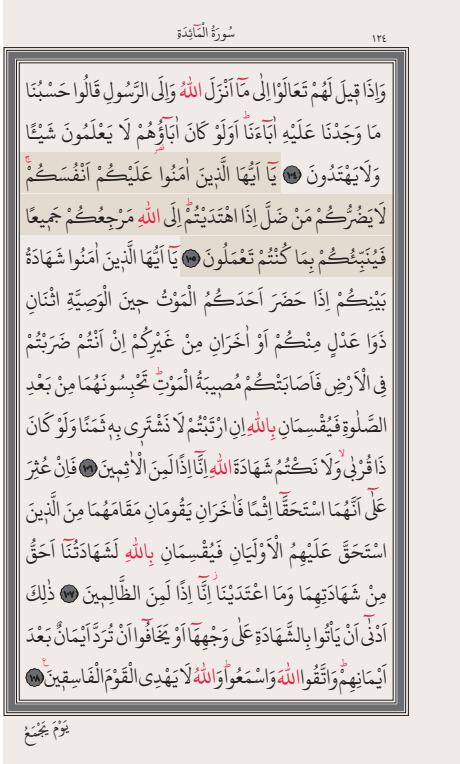 سُورَةُ الْمَٓائِدَةِ
١٢٤
وَاِذَا ق۪يلَ لَهُمْ تَعَالَوْا اِلٰى مَٓا اَنْزَلَ اللّٰهُ وَاِلَى الرَّسُولِ قَالُوا حَسْبُنَا
مَا وَجَدْنَا عَلَيْهِ اٰبَٓاءَنَاۜ اَوَلَوْ كَانَ اٰبَٓاؤُ۬هُمْ لَا يَعْلَمُونَ شَيْـًٔا
وَلَا يَهْتَدُونَ ﴿١٠٤﴾ يَٓا اَيُّهَا الَّذ۪ينَ اٰمَنُوا عَلَيْكُمْ اَنْفُسَكُمْۚ
لَا يَضُرُّكُمْ مَنْ ضَلَّ اِذَا اهْتَدَيْتُمْۜ اِلَى اللّٰهِ مَرْجِعُكُمْ جَم۪يعًا
فَيُنَبِّئُكُمْ بِمَا كُنْتُمْ تَعْمَلُونَ ﴿١٠٥﴾ يَٓا اَيُّهَا الَّذ۪ينَ اٰمَنُوا شَهَادَةُ
بَيْنِكُمْ اِذَا حَضَرَ اَحَدَكُمُ الْمَوْتُ ح۪ينَ الْوَصِيَّةِ اثْنَانِ
ذَوَا عَدْلٍ مِنْكُمْ اَوْ اٰخَرَانِ مِنْ غَيْرِكُمْ اِنْ اَنْتُمْ ضَرَبْتُمْ
فِي الْاَرْضِ فَاَصَابَتْكُمْ مُص۪يبَةُ الْمَوْتِۜ تَحْبِسُونَهُمَا مِنْ بَعْدِ
الصَّلٰوةِ فَيُقْسِمَانِ بِاللّٰهِ اِنِ ارْتَبْتُمْ لَا نَشْتَر۪ي بِه۪ ثَمَنًا وَلَوْ كَانَ
ذَا قُرْبٰىۙ وَلَا نَكْتُمُ شَهَادَةَ اللّٰهِ اِنَّٓا اِذًا لَمِنَ الْاٰثِم۪ينَ ﴿١٠٦﴾ فَاِنْ عُثِرَ
عَلٰٓى اَنَّهُمَا اسْتَحَقَّٓا اِثْمًا فَاٰخَرَانِ يَقُومَانِ مَقَامَهُمَا مِنَ الَّذ۪ينَ
اسْتَحَقَّ عَلَيْهِمُ الْاَوْلَيَانِ فَيُقْسِمَانِ بِاللّٰهِ لَشَهَادَتُنَٓا اَحَقُّ
مِنْ شَهَادَتِهِمَا وَمَا اعْتَدَيْنَاۘ اِنَّٓا اِذًا لَمِنَ الظَّالِم۪ينَ ﴿١٠٧﴾ ذٰلِكَ
اَدْنٰٓى اَنْ يَأْتُوا بِالشَّهَادَةِ عَلٰى وَجْهِهَٓا اَوْ يَخَافُٓوا اَنْ تُرَدَّ اَيْمَانٌ بَعْدَ
اَيْمَانِهِمْۜ وَاتَّقُوا اللّٰهَ وَاسْمَعُواۜ وَاللّٰهُ لَا يَهْدِي الْقَوْمَ الْفَاسِق۪ينَ۟ ﴿١٠٨﴾
يَوْمَ يَجْمَعُ